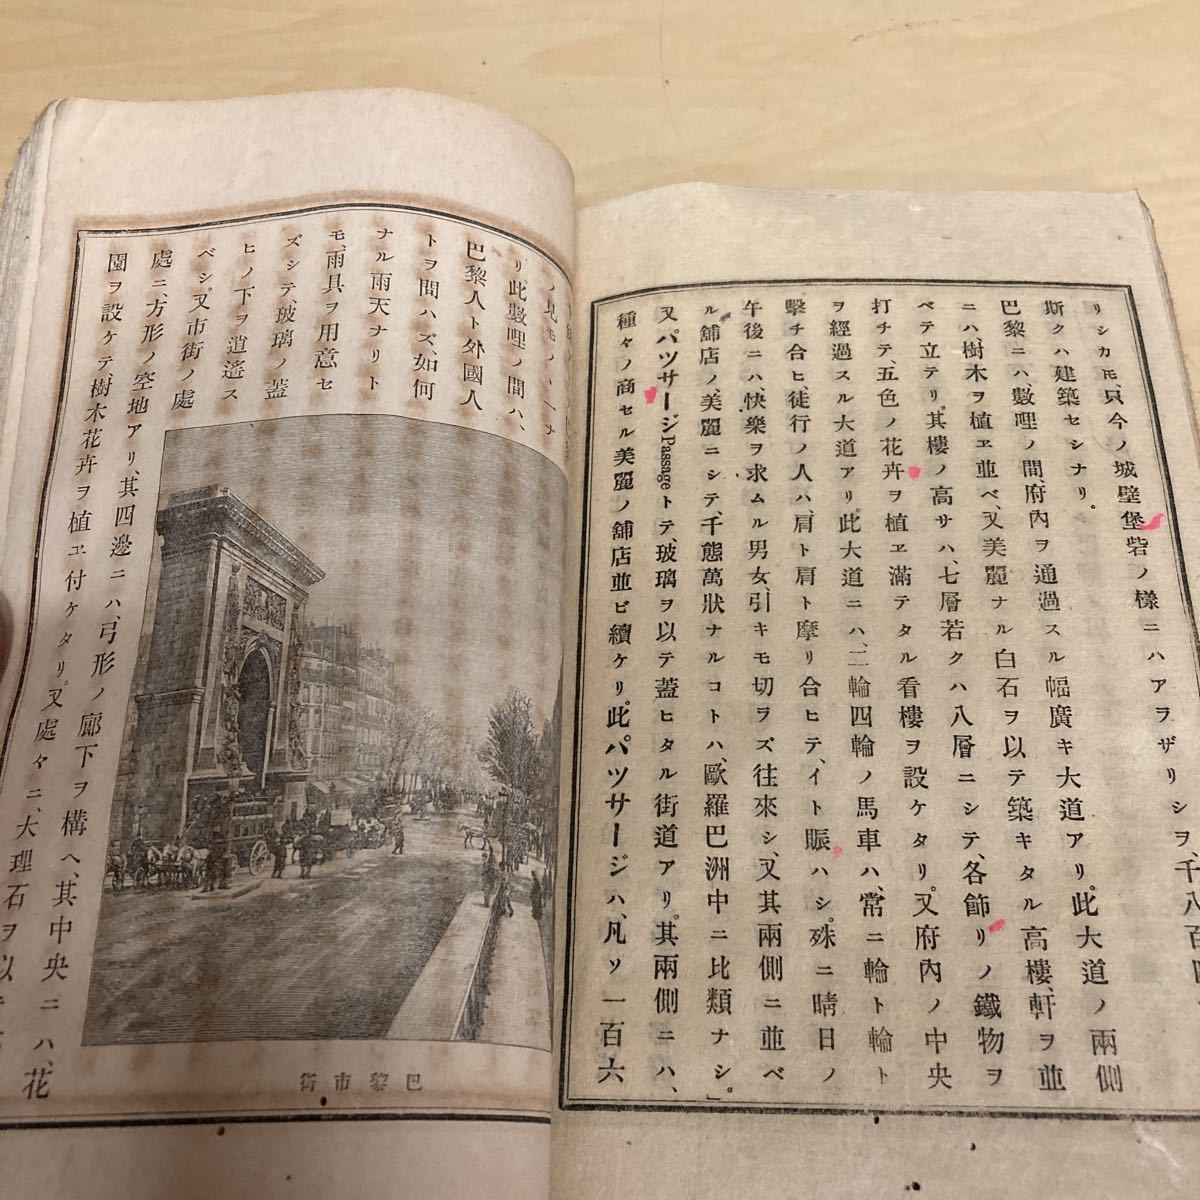 リシカモ、只今ノ城壁堡砦ノ樣ニハアラザリシヲ、千八百四
斯クハ建築セシナリ。
巴黎ニハ、數哩ノ間、府內ヲ通過スル幅廣キ大道アリ。此大道ノ兩側
ニハ樹木ヲ植ヱ並ベ、又美麗ナル白石ヲ以テ築キタル高樓、軒ヲ並
ベテ立テリ、其樓ノ高サハ、七層若クハ八層ニシテ、各飾リノ鐵物ヲ
打チテ、五色ノ花卉ヲ植ヱ滿テタル看樓ヲ設ケタリ。又府內ノ中央
ヲ經過スル大道アリ。此大道ニハ、二輪四輪ノ馬車ハ、常ニ輪ト輪ト
擊チ合ヒ、徒行ノ人ハ、肩ト肩ト摩リ合ヒテ、イト賑ハシ。殊ニ晴日ノ
午後ニハ、快樂ヲ求ムル男女、引キモ切ラズ往來シ、又其兩側ニ並ベ
ル舖店ノ、美麗ニシテ、千態萬狀ナルコトハ、歐羅巴洲中ニ比類ナシ。」
又パツサージPassageトテ、玻璃ヲ以テ蓋ヒタル街道アリ。其兩側ニハ、
種々ノ商セル美麗ノ舖店並ビ續ケリ。此パツサージハ、凡ソ一百六
リ此數哩ノ間ハ、
巴黎人ト外國人
トヲ問ハズ、如何
ナル雨天ナリト
モ、雨具ヲ用意セ
ズシテ、玻璃ノ蓋
ヒノ下ヲ逍遙ス
ベシ。又市街ノ處
處ニ、方形ノ空地アリ、其四邊ニハ、弓形ノ廊下ヲ構ヘ、其中央ニハ、花
園ヲ設ケテ、樹木花卉ヲ植ヱ付ケタリ。又處々ニ、大理石ヲ以
巴黎市街